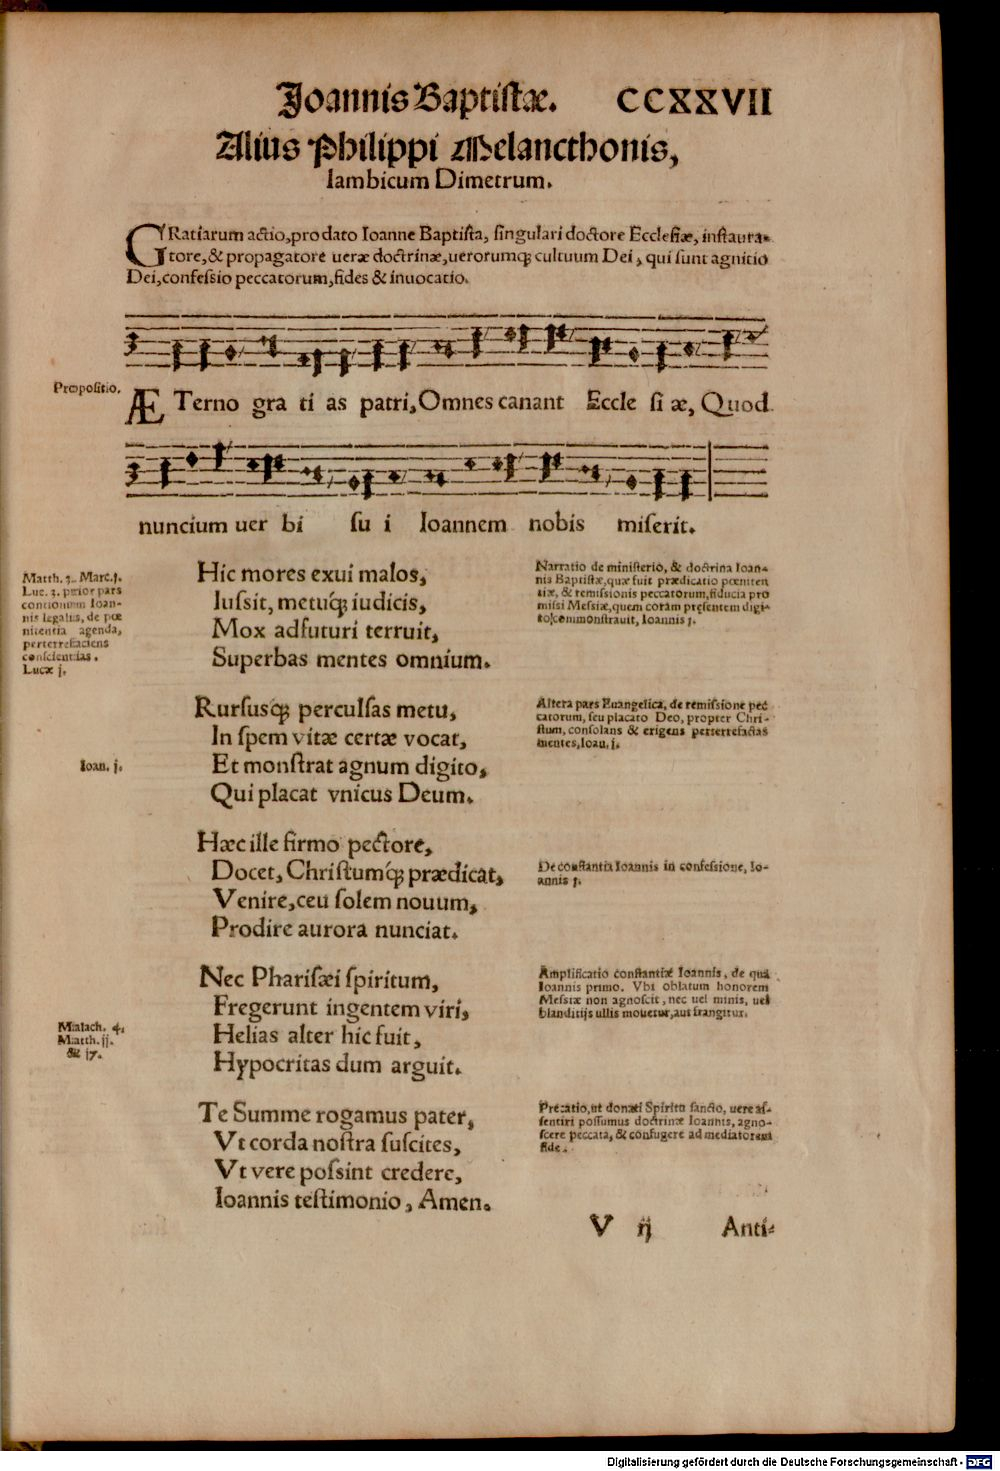 Joannis Baptistæ. CCXXVII
Alius Philippi Melancthonis,
Iambicum Dimetrum.
GRatiarum actio, pro dato Ioanne Baptista, singulari doctore Ecclesiæ, instaura-
tore, & propagatore ueræ doctrinæ, uerorumq; cultuum Dei, qui sunt agnitio
Dei, confessio peccatorum, fides & inuocatio.
Propositio.
ÆTerno gra ti as patri, Omnes canant Eccle si æ, Quod
nuncium uer bi su i Ioannem nobis miserit.
Matth. 3. Marc. j.
Luc. 3. prior pars
concionum Ioan-
nis legalis, de pœ
nitentia agenda,
perterrefaciens
conscientias.
Lucæ j.
Hic mores exui malos,
Iussit, metuq́; iudicis,
Mox adfuturi terruit,
Superbas mentes omnium.
Narratio de ministerio, & doctrina Ioan-
nis Baptistæ, quæ fuit prædicatio pœniten
tiæ, & remissionis peccatorum, fiducia pro
missi Messiæ, quem coràm pręsentem digi-
to commonstrauit, Ioannis j.
Rursusq́; perculsas metu,
In spem vitæ certæ vocat,
Et monstrat agnum digito,
Qui placat vnicus Deum.
Ioan. j.
Altera pars Euangelica, de remissione pec
catorum, seu placato Deo, propter Chri-
stum, consolans & erigens perterrefactas
mentes, Ioan. j.
Hæc ille firmo pectore,
Docet, Christumq́; prædicat,
Venire, ceu solem nouum,
Prodire aurora nunciat.
De constantia Ioannis in confessione, Io-
annis j.
Nec Pharisæi spiritum,
Fregerunt ingentem viri,
Helias alter hic fuit,
Hypocritas dum arguit.
Malach. 4.
Matth. jj.
& j7.
Amplificatio constantiæ Ioannis, de qua
Ioannis primo. Vbi oblatum honorem
Messiæ non agnoscit, nec uel minis, uel
blanditijs ullis mouetur, aut frangitur.
Te Summe rogamus pater,
Vt corda nostra suscites,
Vt vere possint credere,
Ioannis testimonio, Amen.
Precatio, ut donati Spiritu sancto, uere as-
sentiri possumus doctrinæ Ioannis, agno-
scere peccata, & confugere ad mediatorem
fide.
V ij Anti-
Digitalisierung gefördert durch die Deutsche Forschungsgemeinschaft - DFG